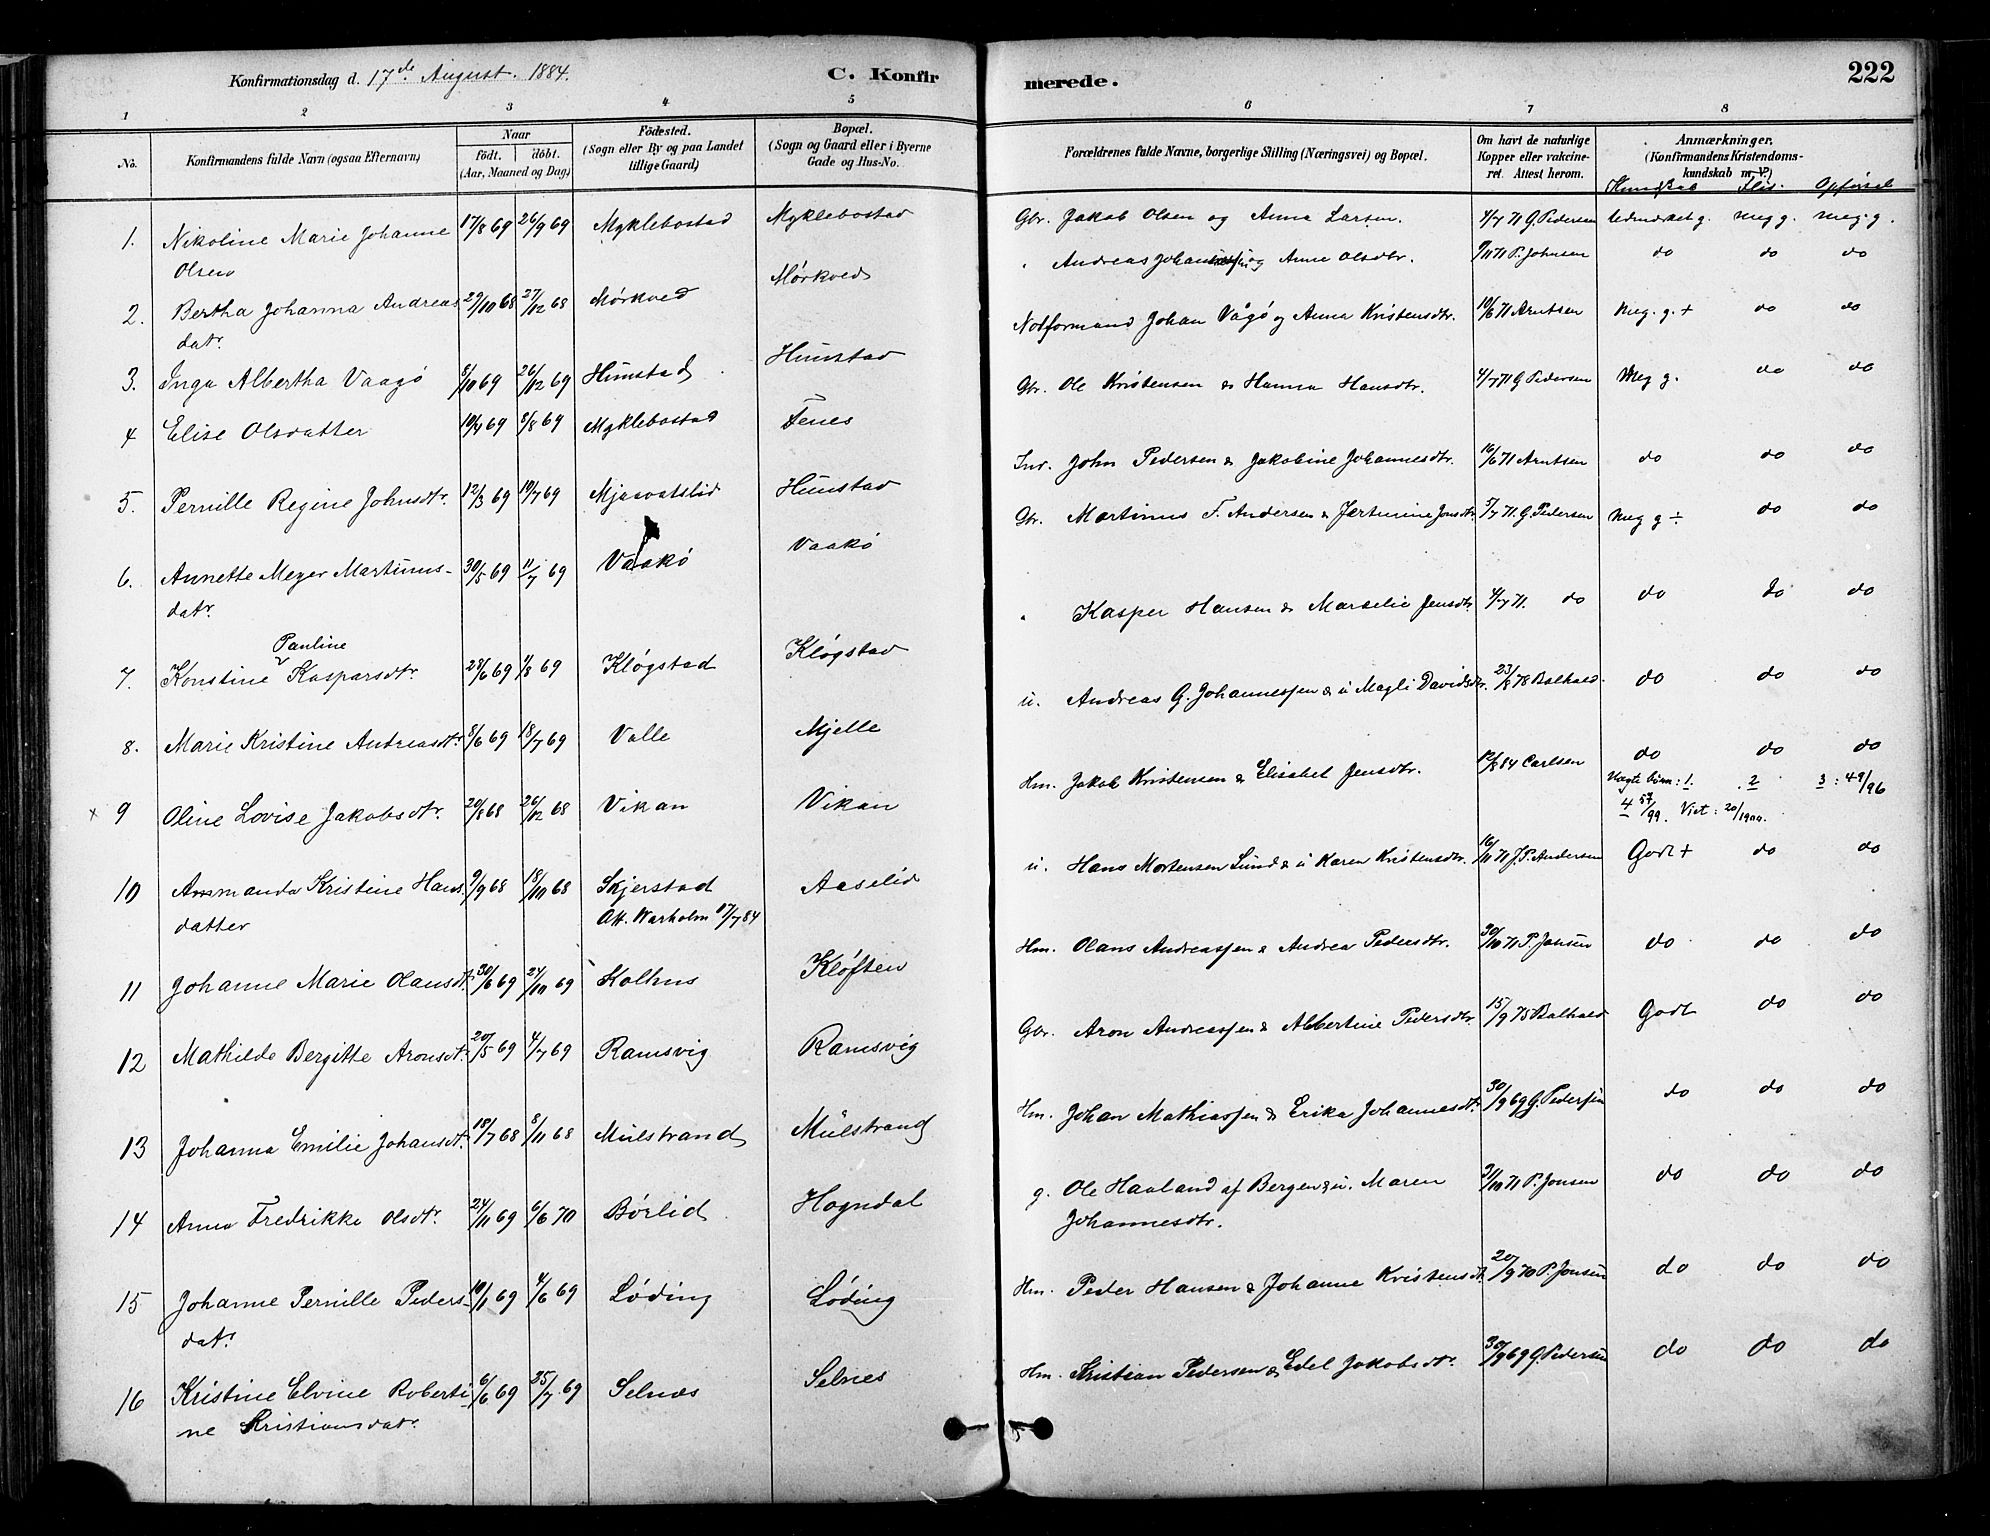 Konfirmationsdag d. 17de August. 1884.
C. Konfirmerede.
222
1 2 3 4 5 6 7 8
No.
Konfirmandens fulde Navn (ogsaa Efternavn)
Naar
født. døbt.
(Aar, Maaned og Dag)
Födested.
(Sogn eller By og paa Landet
tillige Gaard)
Bopæl.
(Sogn og Gaard eller i Byerne
Gade og Hus-No.
Forældrenes fulde Navne, borgerlige Stilling (Næringsvei) og Bopæl.
Om havt de naturlige
Kopper eller vakcine-
ret. Attest herom.
Anmærkninger.
(Konfirmandens Kristendoms-
kundskab m. V.)
Kundskab Flid. Opførsel
1. Nikoline Marie Johanne 17/8 69 26/9 69 Myklebostad Myklebostad Gbr. Jakob Olsen og Anna Larsen. 4/7 71 G. Pedersen Udmærket g. meg g. meg. g.
Olsen
2. Bertha Johanna Andreas 29/10 68 27/12 68 Mørkved Mørkved " Andreas Johannessen og Anne Olsdtr. 9/11 71 P. Johnsen do do do
datr.
3. Inga Albertha Vaagø 8/10 69 26/12 69 Hunstad Hunstad Notformand Johan Vågø og Anna Kristensdtr. 10/6 71 Arntsen Meg. g. + do do
4 Elise Olsdatter 10/4 69 8/8 69 Myklebostad Fenes Gbr. Ole Kristensen & Hanna Hansdtr. 4/7 71 G Pedersen Meg g. do do
5. Pernille Regine Johnsdtr. 12/3 69 19/7 69 Mjaavatslid Hunstad Inr. John Pedersen & Jakobine Johannesdtr. 16/6 71 Arntsen do do do
6. Annette Meyer Martinus- 30/5 69 11/7 69 Vaakø Vaakø Gr. Martinus F. Andersen & Jertinine Jonsdtr. 5/7 71. G. Pedersen Meg g ÷ do do
datr.
Pauline
7. Konstine Kasparsdtr. 28/6 69 1/8 69 Kløgstad Kløgstad " Kasper Hansen & Marselie Jensdtr. 4/7 71. do do do do
8. Marie Kristine Andreasdtr. 8/6 69 18/7 69 Valle Mjelle u. Andreas G. Johannessen & u Magli Davidsdtr. 23/8 78 Balhald do do do
× 9 Oline Lovise Jakobsdtr. 20/8 68 26/12 68 Vikan Vikan Hm. Jakob Kristensen & Elisabet Jensdtr. 12/8 84 Carlsen do do do
1. . 2 3 : 49/96
4 57/99. Viet : 20/1900.
10 Ammanda Kristine Hans 9/9 68 18/10 68 Skjerstad Aaselid u. Hans Mortensen Lund & u Karen Kristensdtr. 16/11 71 J. P. Andersen Godt + do do
datter Att. Warholm 17/7 84
11 Johanne Marie Olausdtr. 30/6 69 24/10 69 Kolhus Kløften Hm. Olaus Andreassen & Andrea Pedersdtr. 30/10 71 P. Jonsen do do do
12 Mathilde Bergitte Aronsdtr. 20/5 69 4/7 69 Ramsvig Ramsvig Gbr. Aron Andreassen & Albertine Pedersdtr. 15/9 75 Balhald Godt do do
13 Johanna Emilie Johansdtr. 18/7 68 8/11 68 Mulstrand Mulstrand Hm. Johan Mathiassen & Erika Johannesdtr. 30/9 69 G. Pedersen do do do
14 Anna Fredrikke Olsdtr. 24/11 69 6/6 70 Børlid Hogndal g. Ole Haaland af Bergen & u. Maren 21/10 71 P. Jonsen do do do
Johannesdtr.
15 Johanne Pernille Peders- 10/1 69 4/6 69 Løding Løding Hm. Peder Hansen & Johanne Kristensdtr. 20/9 70 P. Jonsen do do do
datr.
16 Kristine Elvine Roberti- 6/6 69 25/7 69 Selnæs Selnes Hm. Kristian Pedersen & Edel Jakobsdtr. 30/9 69 G. Pedersen do do do
ne Kristiansdatr.